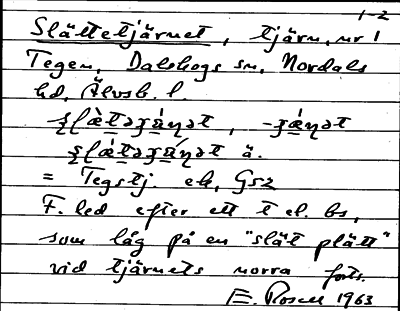 1-2
Slättetjärnet, tjärn, nr 1
Tegen, Dalskogs sn, Nordals
hd, Älvsb. l.
= Tegstj. ek, Gsz
F. led efter ett t el. bs,
som låg på en "slät plätt"
vid tjärnets norra forts.
E. Rosell 1963